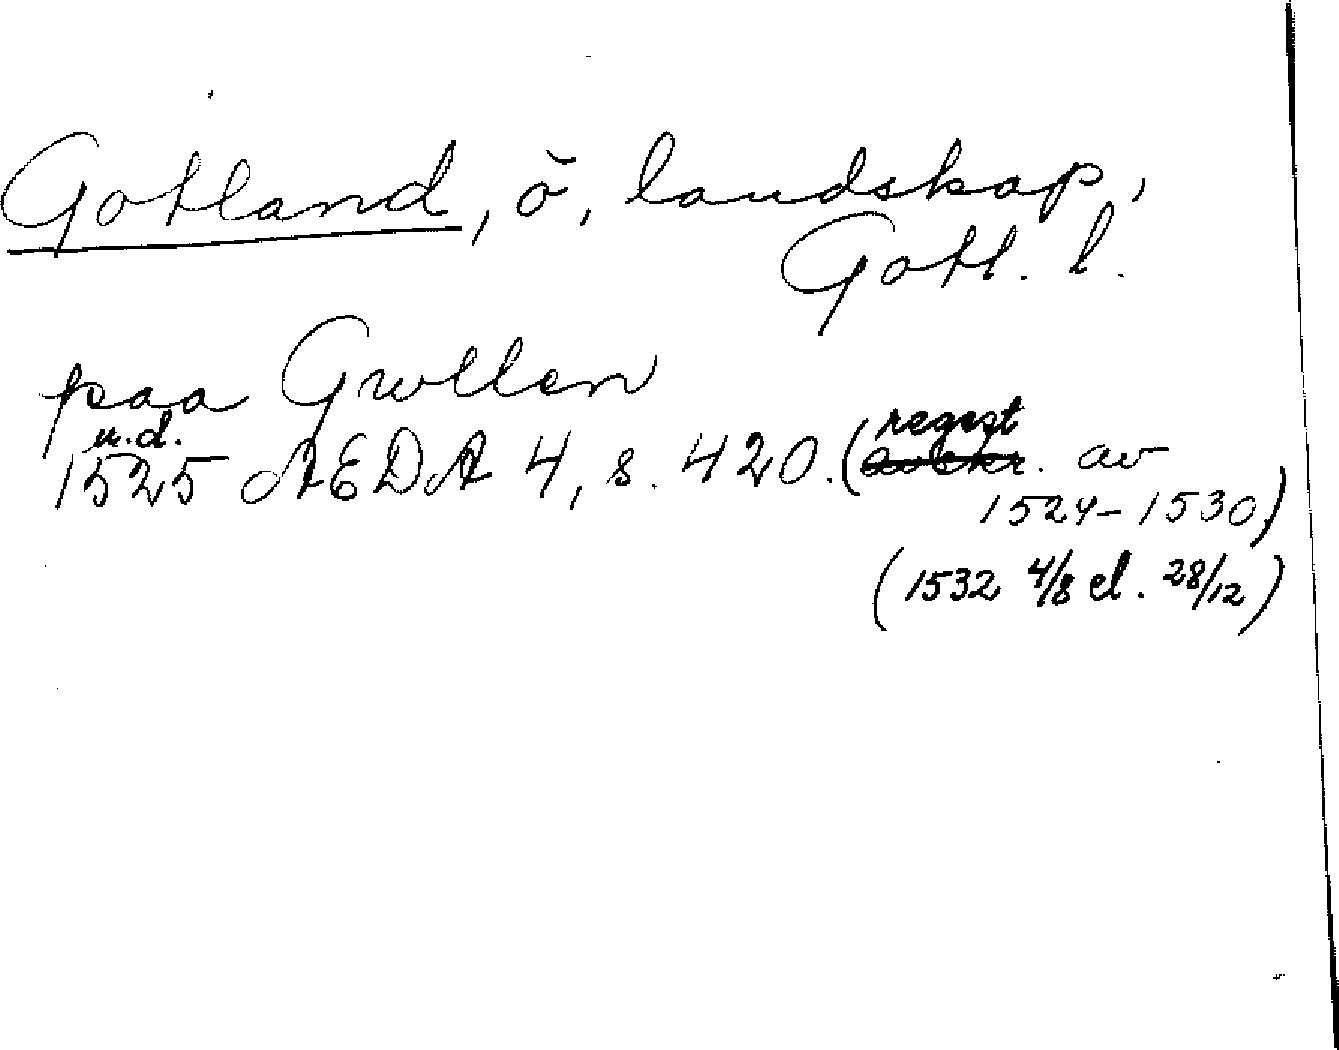 Gotland, ö, landskap,
Gotl. l.
paa Gwllen
u.d.
1525 ÆDA 4, s. 420. (regest av
1524-1530)
(1532 4/8 el. 28/12)